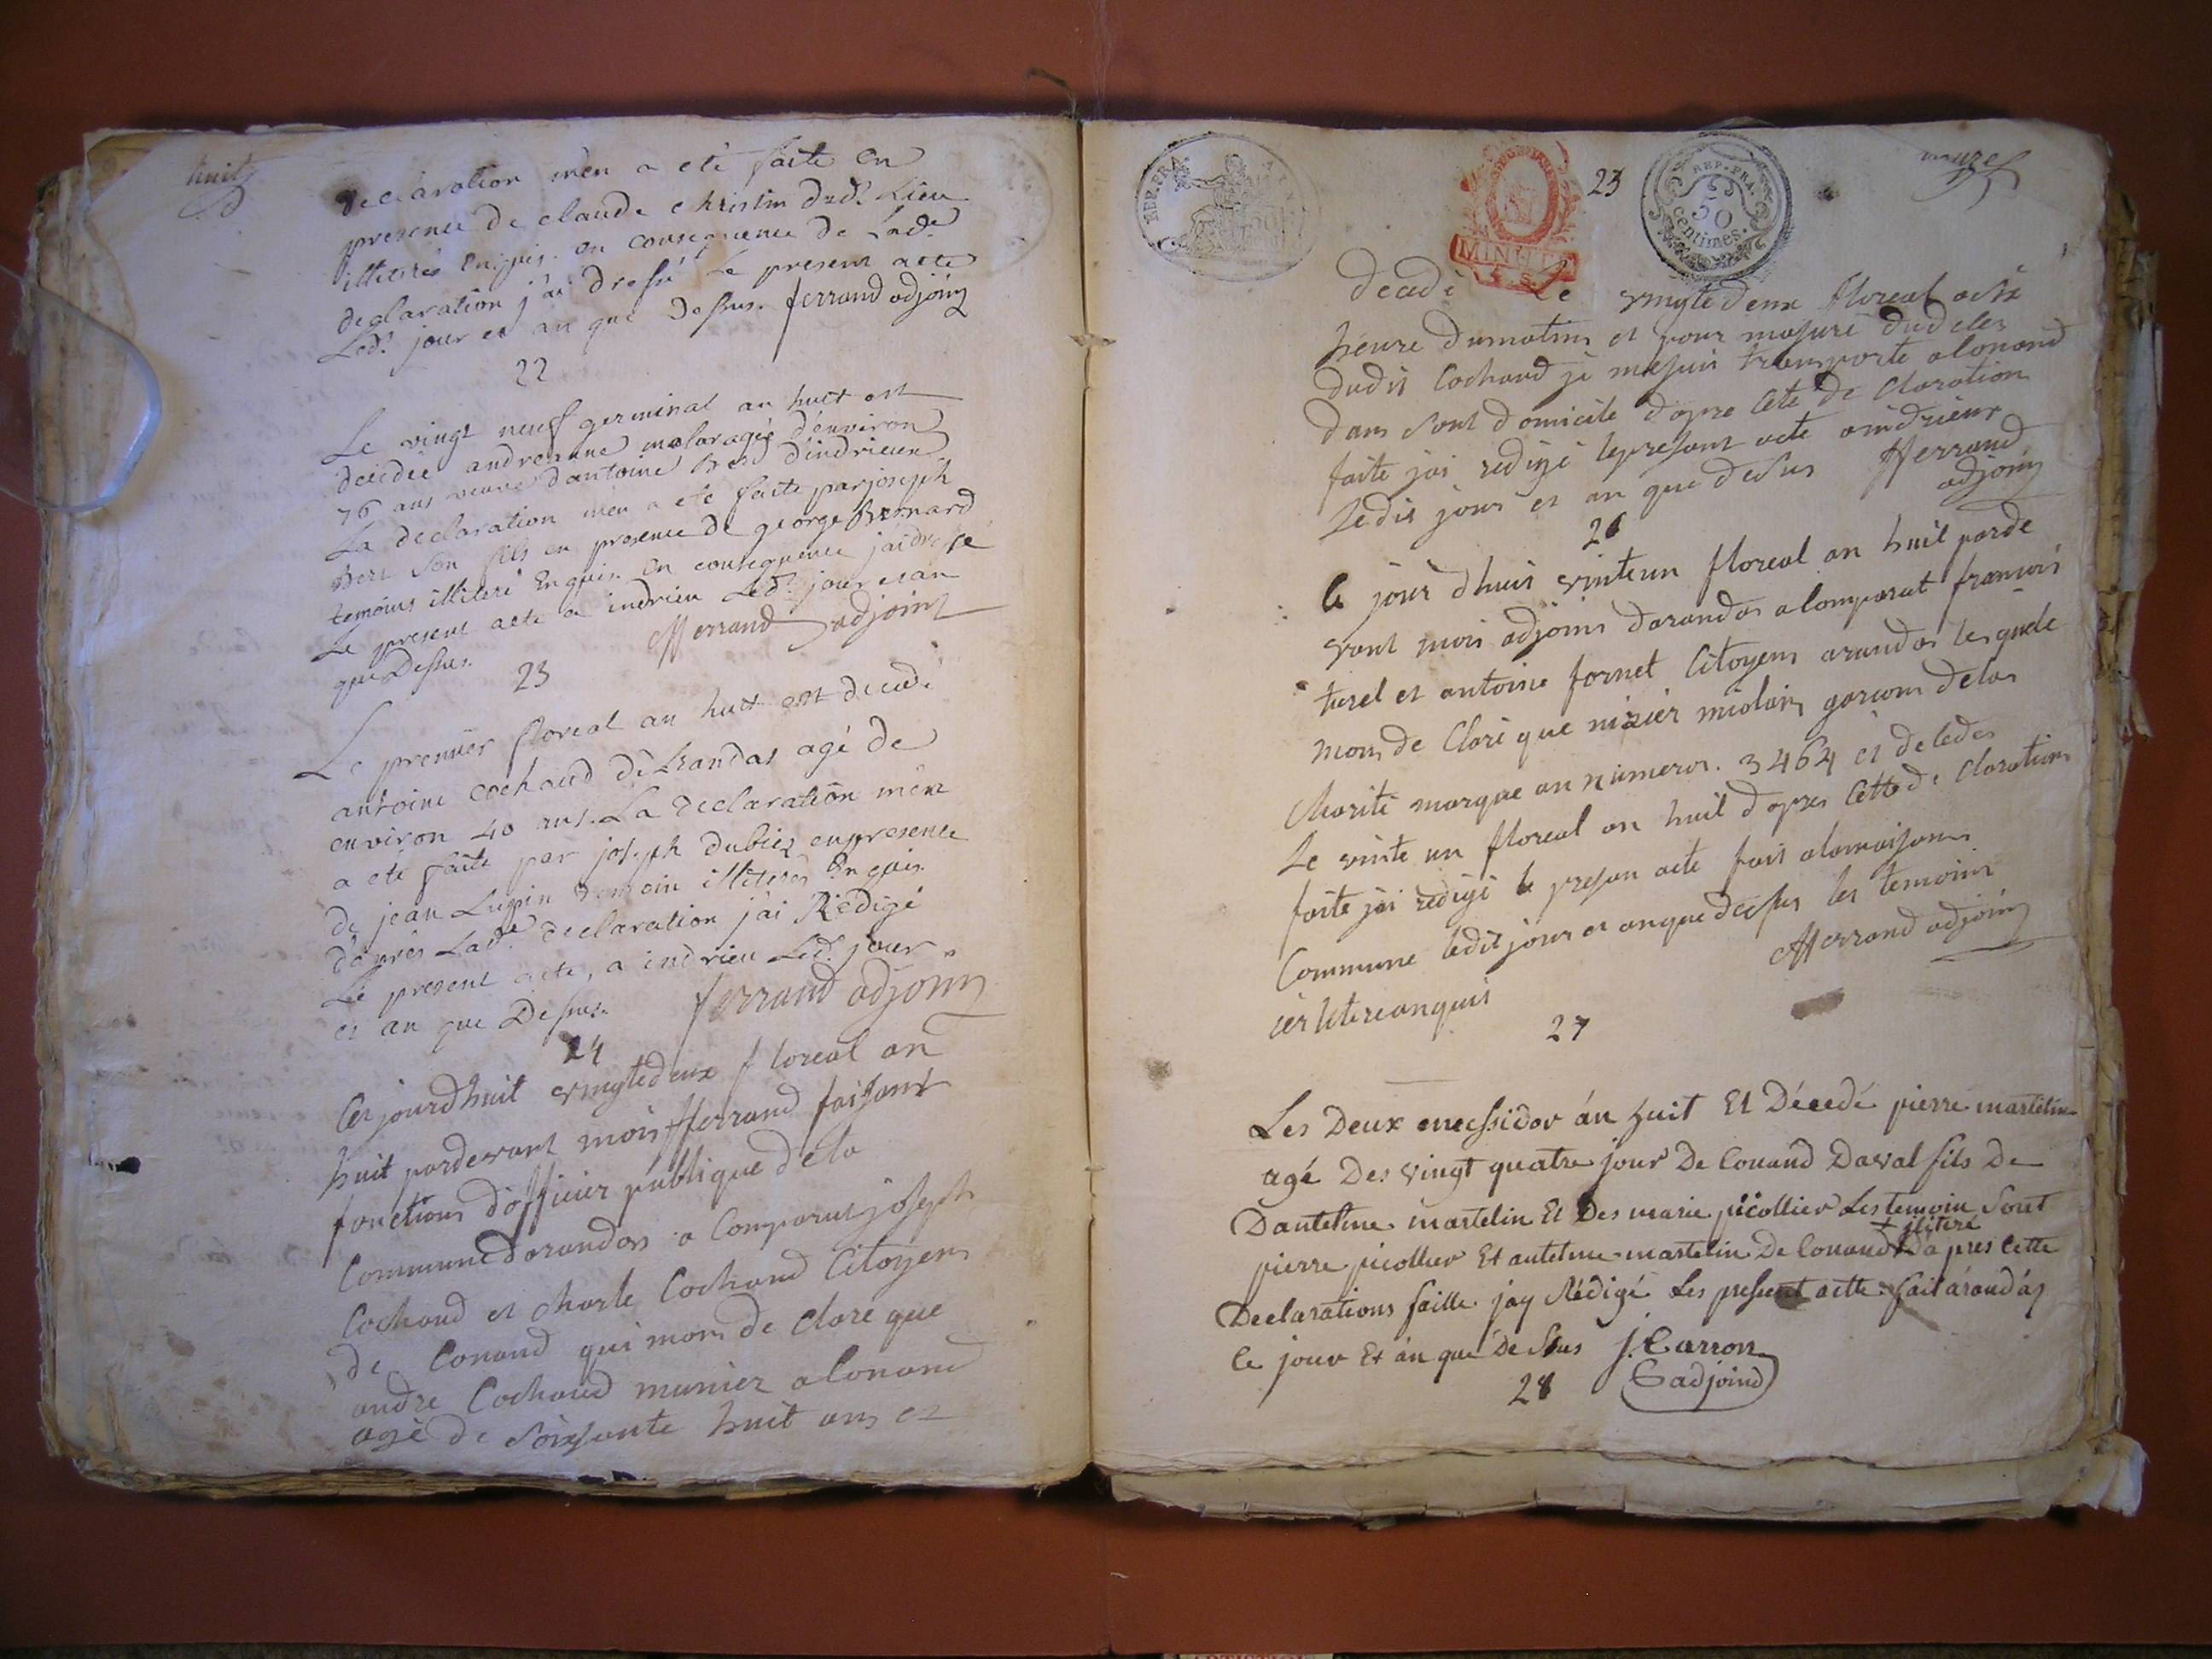 huit
declaration m'en a eté faite en
presence de claude christin dud. Lieu
illiterés Enquis. en consequence de Lad.e
declaration j'ai dressé Le present acte
Led. jour et an que Dessus. ferrand adjoint
22
Le vingt neuf germinal an huit est
decidée andreanne molar agée d'environ
76 ans veuve d'antoine Bert d'indrieux
La declaration m'en a eté faite par joseph
Bert son fils en presence de george Bernard
temoins illiteré Enquis. en consequence j'ai dressé
Le present acte a indrieu Led. jour et an
que Dessus. fferrand adjoint
23
Le premier floreal an huit est decedé
antoine cochaud d'Arandas agé de
environ 40 ans. La declaration m'en
a eté faite par joseph dubiez en presence
de jean Luppin temoin illiteres Enquis.
d'après Lad.e declaration j'ai Redigé
Le present acte, a indrieu Led. jour
et an que Dessus. ferrand adjoint
24
Cejourdhuit vingtedeux floreal an
huit pardevant mois fferrand faisant
fonctions d'officier publique dela
Commune darandas a Comparut joseph
Cochaud et charle Cochaud Citoyens
de Conand qui mons de clare que
andre Cochaud munier a Conand
agé de Soixsante huit ans et
REP. FRA.
MINUTE
23
REP. FRA.
50
centimes.
decade Le vingtedeux floreal
heure dumatins et pour
dudit Cochaud je mesuis transporté a Conand
dans sont domicile d'apre Cete de Claration
faite jai redigé lepresant acte aindrieux
Ledit jours et an que desus fferrand
adjoint
26
Ce jour dhuis vinteun floreal an huit parde
vant mois adjoins darandas a Comparut francois
turel et antoine fornet Citoyens arandas lesquele
mons de Claré que nizier miolans garcons delas
Charité marque an numeros. 3464 et deledes
Le vinte un floreal an huit d'apres Cette de Clarations
faite jai redigé le presan acte fait alamaisons
Commune ledit jour et anque decsus les temoins
fferrand adjoint
27
Les Deux messidor án huit Et Décedé pierre martelin
agé Des vingt quatre jour De Conand Daval fils De
Dantelme martelin Et Des marie picollier Les temoin Sont
iliteré
pierre picollier Et antelme martelin De Conand Dapres Cette
Declarations faitte jay Rédigé Les present actte fait árandás
le jour Et án que De Sus J. Carron
adjoind
28